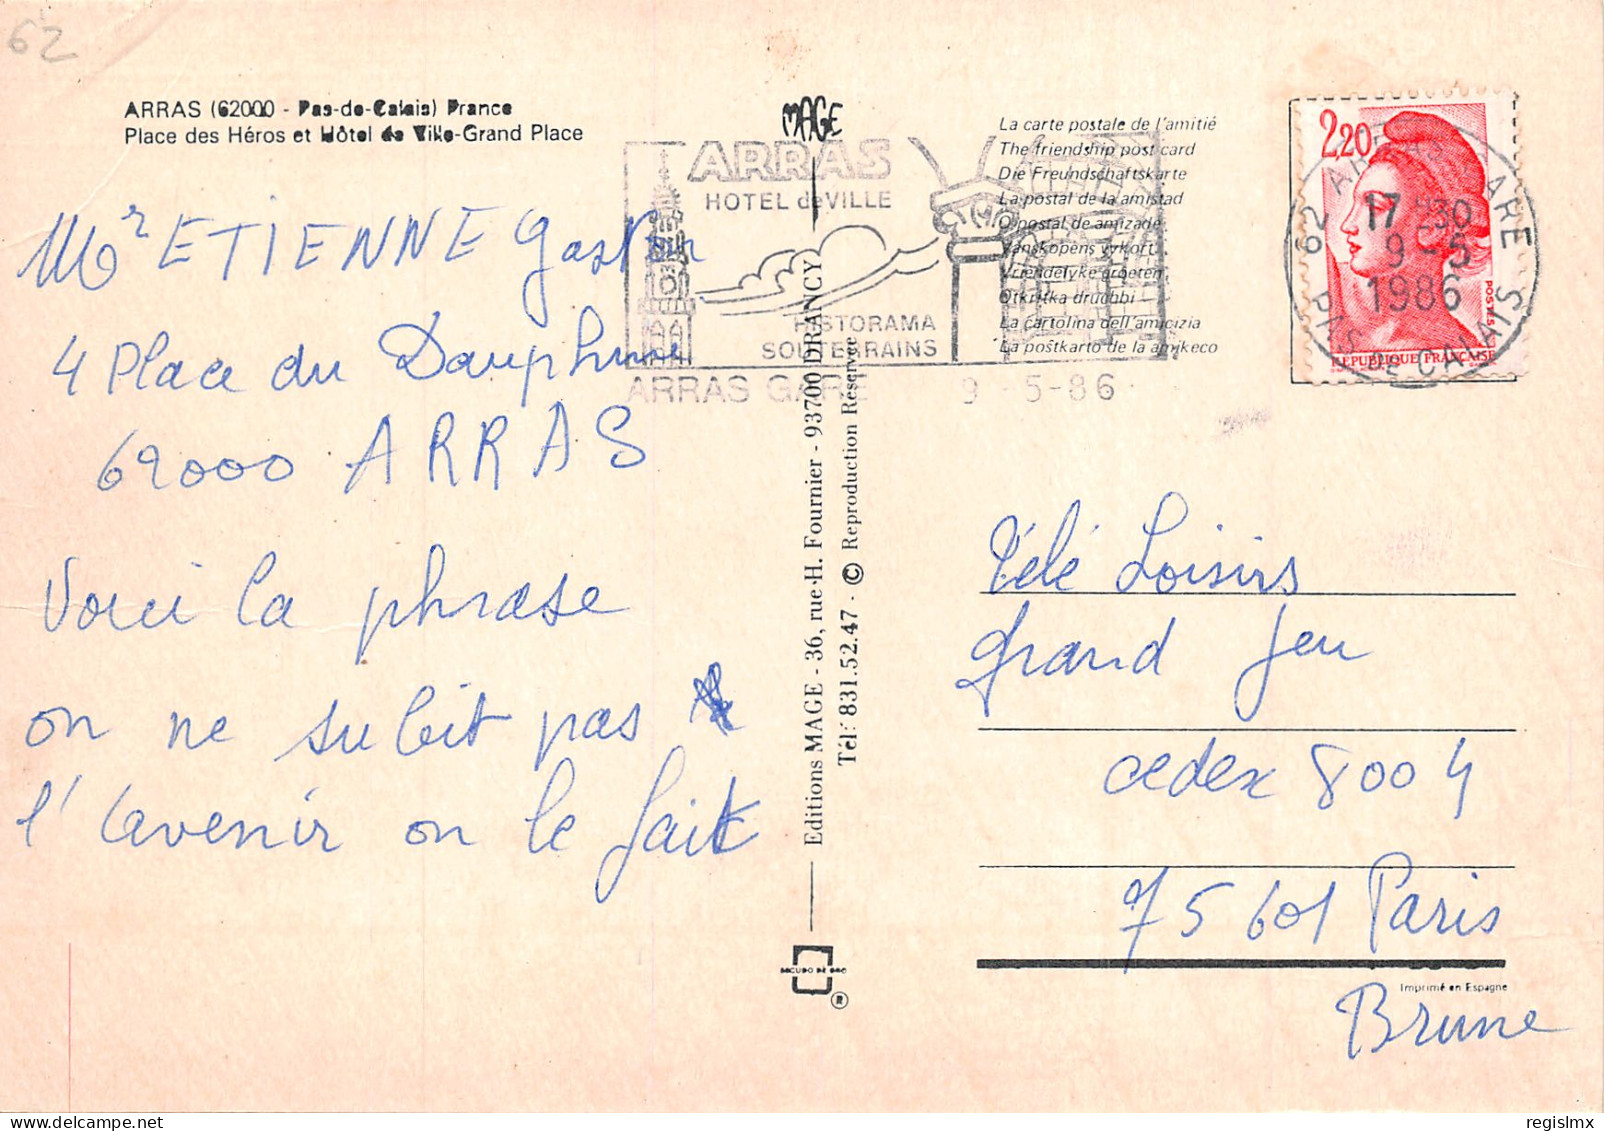 62
ARRAS (62000 - Pas-de-Calais) France
Place des Héros et Hôtel de Ville-Grand Place
Mr ETIENNE Gaston
4 Place du Dauphiné
62000 ARRAS
Voici la phrase
on ne subit pas
l'avenir on le fait
MAGE
ARRAS
HOTEL de VILLE
HISTORAMA
SOUTERRAINS
ARRAS GARE 9-5-86
Editions MAGE - 36, rue H. Fournier - 93700 DRANCY
Tél: 831.52.47 - © Reproduction Réservée
La carte postale de l'amitié
The friendship post card
Die Freundschaftskarte
La postal de la amistad
O postal de amizade
Vanskopens vykort
Vriendelyke groeten
Otkritka druchbi
La cartolina dell'amicizia
La postkarto de la amikeco
2,20
POSTES
REPUBLIQUE FRANÇAISE
62 ARRAS GARE
17 30
9-5
1986
PAS DE CALAIS
Télé Loisirs
grand Jeu
cedex 8004
75601 Paris
Brune
ESCUDO DE ORO
®
Imprimé en Espagne
regislmx